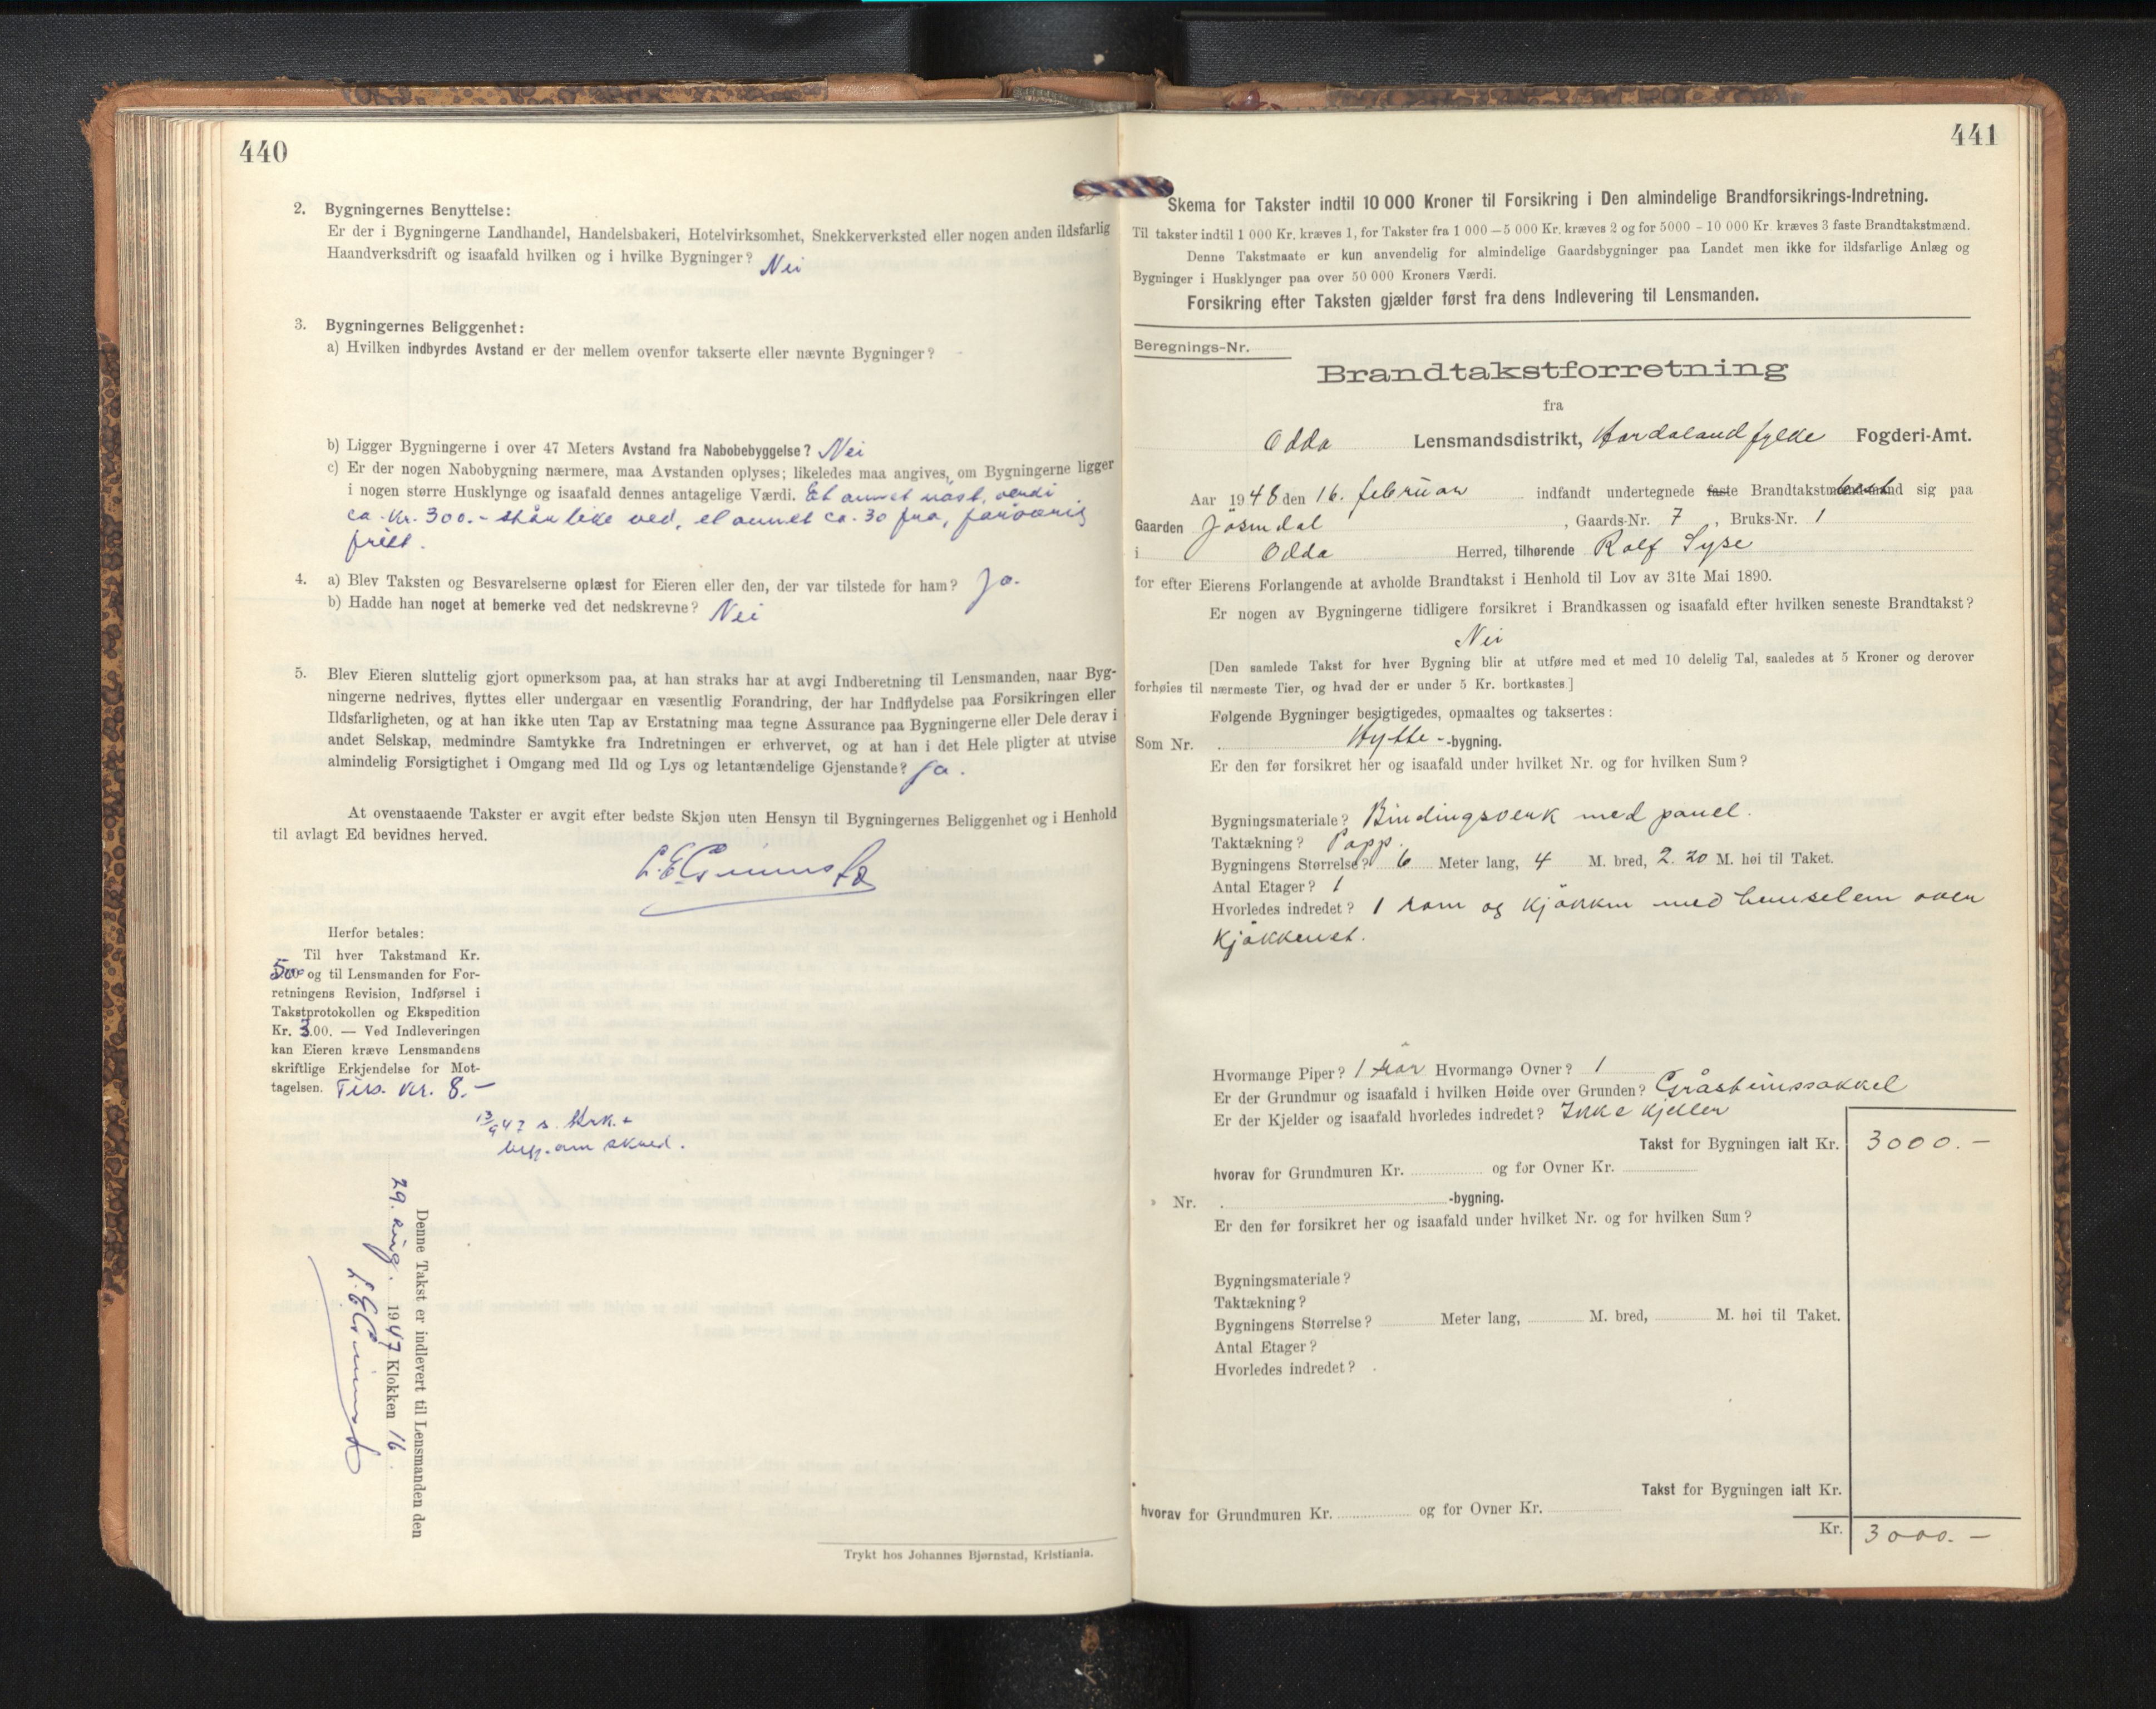 440
2. Bygningernes Benyttelse:
Er der i Bygningerne Landhandel, Handelsbakeri, Hotelvirksomhet, Snekkerverksted eller nogen anden ildsfarlig
Haandverksdrift og isaafald hvilken og i hvilke Bygninger? Nei
3. Bygningernes Beliggenhet:
a) Hvilken indbyrdes Avstand er der mellem ovenfor takserte eller nævnte Bygninger?
b) Ligger Bygningerne i over 47 Meters Avstand fra Nabobebyggelse? Nei
c) Er der nogen Nabobygning nærmere, maa Avstanden oplyses; likeledes maa angives, om Bygningerne ligger
i nogen større Husklynge og isaafald dennes antagelige Værdi. Et annet naust, verdi
ca. kr. 300.- står like ved, et annet ca. 30 fra, forøvrig
fritt.
4. a) Blev Taksten og Besvarelserne oplæst for Eieren eller den, der var tilstede for ham? Ja.
b) Hadde han noget at bemerke ved det nedskrevne? Nei
5. Blev Eieren sluttelig gjort opmerksom paa, at han straks har at avgi Indberetning til Lensmanden, naar Byg-
ningerne nedrives, flyttes eller undergaar en væsentlig Forandring, der har Indflydelse paa Forsikringen eller
Ildsfarligheten, og at han ikke uten Tap av Erstatning maa tegne Assurance paa Bygningerne eller Dele derav i
andet Selskap, medmindre Samtykke fra Indretningen er erhvervet, og at han i det Hele pligter at utvise
almindelig Forsigtighet i Omgang med Ild og Lys og letantændelige Gjenstande? Ja.
At ovenstaaende Takster er avgit efter bedste Skjøn uten Hensyn til Bygningernes Beliggenhet og i Henhold
til avlagt Ed bevidnes herved.
Herfor betales:
Til hver Takstmand Kr.
5.00 og til Lensmanden for For-
retningens Revision, Indførsel i
Takstprotokollen og Ekspedition
Kr. 3.00. — Ved Indleveringen
kan Eieren kræve Lensmandens
skriftlige Erkjendelse for Mot-
tagelsen. Tils. kr. 8.-
13/9 47 s.
Denne Takst er indlevert til Lensmanden den
29. aug. 1947 Klokken 16.
Trykt hos Johannes Bjørnstad, Kristiania.
441
Skema for Takster indtil 10 000 Kroner til Forsikring i Den almindelige Brandforsikrings-Indretning.
Til takster indtil 1 000 Kr. kræves 1, for Takster fra 1 000 — 5 000 Kr. kræves 2 og for 5000 – 10 000 Kr. kræves 3 faste Brandtakstmænd.
Denne Takstmaate er kun anvendelig for almindelige Gaardsbygninger paa Landet men ikke for ildsfarlige Anlæg og
Bygninger i Husklynger paa over 50 000 Kroners Værdi.
Forsikring efter Taksten gjælder først fra dens Indlevering til Lensmanden.
Beregnings-Nr.
Brandtakstforretning
fra
Odda Lensmandsdistrikt, Hordaland fylke Fogderi-Amt.
Aar 1948 den 16. februar indfandt undertegnede faste Brandtakstmænd sig paa
Gaarden Jösendal, Gaards-Nr. 7, Bruks-Nr. 1
i Odda Herred, tilhørende Rolf Syse
for efter Eierens Forlangende at avholde Brandtakst i Henhold til Lov av 31te Mai 1890.
Er nogen av Bygningerne tidligere forsikret i Brandkassen og isaafald efter hvilken seneste Brandtakst?
Nei
[Den samlede Takst for hver Bygning blir at utføre med et med 10 delelig Tal, saaledes at 5 Kroner og derover
forhøies til nærmeste Tier, og hvad der er under 5 Kr. bortkastes.]
Følgende Bygninger besigtigedes, opmaaltes og taksertes:
Som Nr. Hytte- -bygning.
Er den før forsikret her og isaafald under hvilket Nr. og for hvilken Sum?
Bygningsmateriale? Bindingsverk med panel.
Taktækning? Papp.
Bygningens Størrelse? 6 Meter lang, 4 M. bred, 2.20 M. høi til Taket.
Antal Etager? 1
Hvorledes indredet? 1 rom og kjökken med hemselem over
kjökkenet.
Hvormange Piper? 1 rör Hvormange Ovner? 1
Er der Grundmur og isaafald i hvilken Høide over Grunden? Gråsteinssokkel
Er der Kjelder og isaafald hvorledes indredet? Ikke kjeller
Takst for Bygningen ialt Kr. 3000.-
hvorav for Grundmuren Kr. og for Ovner Kr.
» Nr. -bygning.
Er den før forsikret her og isaafald under hvilket Nr. og for hvilken Sum?
Bygningsmateriale?
Taktækning?
Bygningens Størrelse? Meter lang, M. bred, M. høi til Taket.
Antal Etager?
Hvorledes indredet?
Takst for Bygningen ialt Kr.
hvorav for Grundmuren Kr. og for Ovner Kr.
Kr. 3000.-